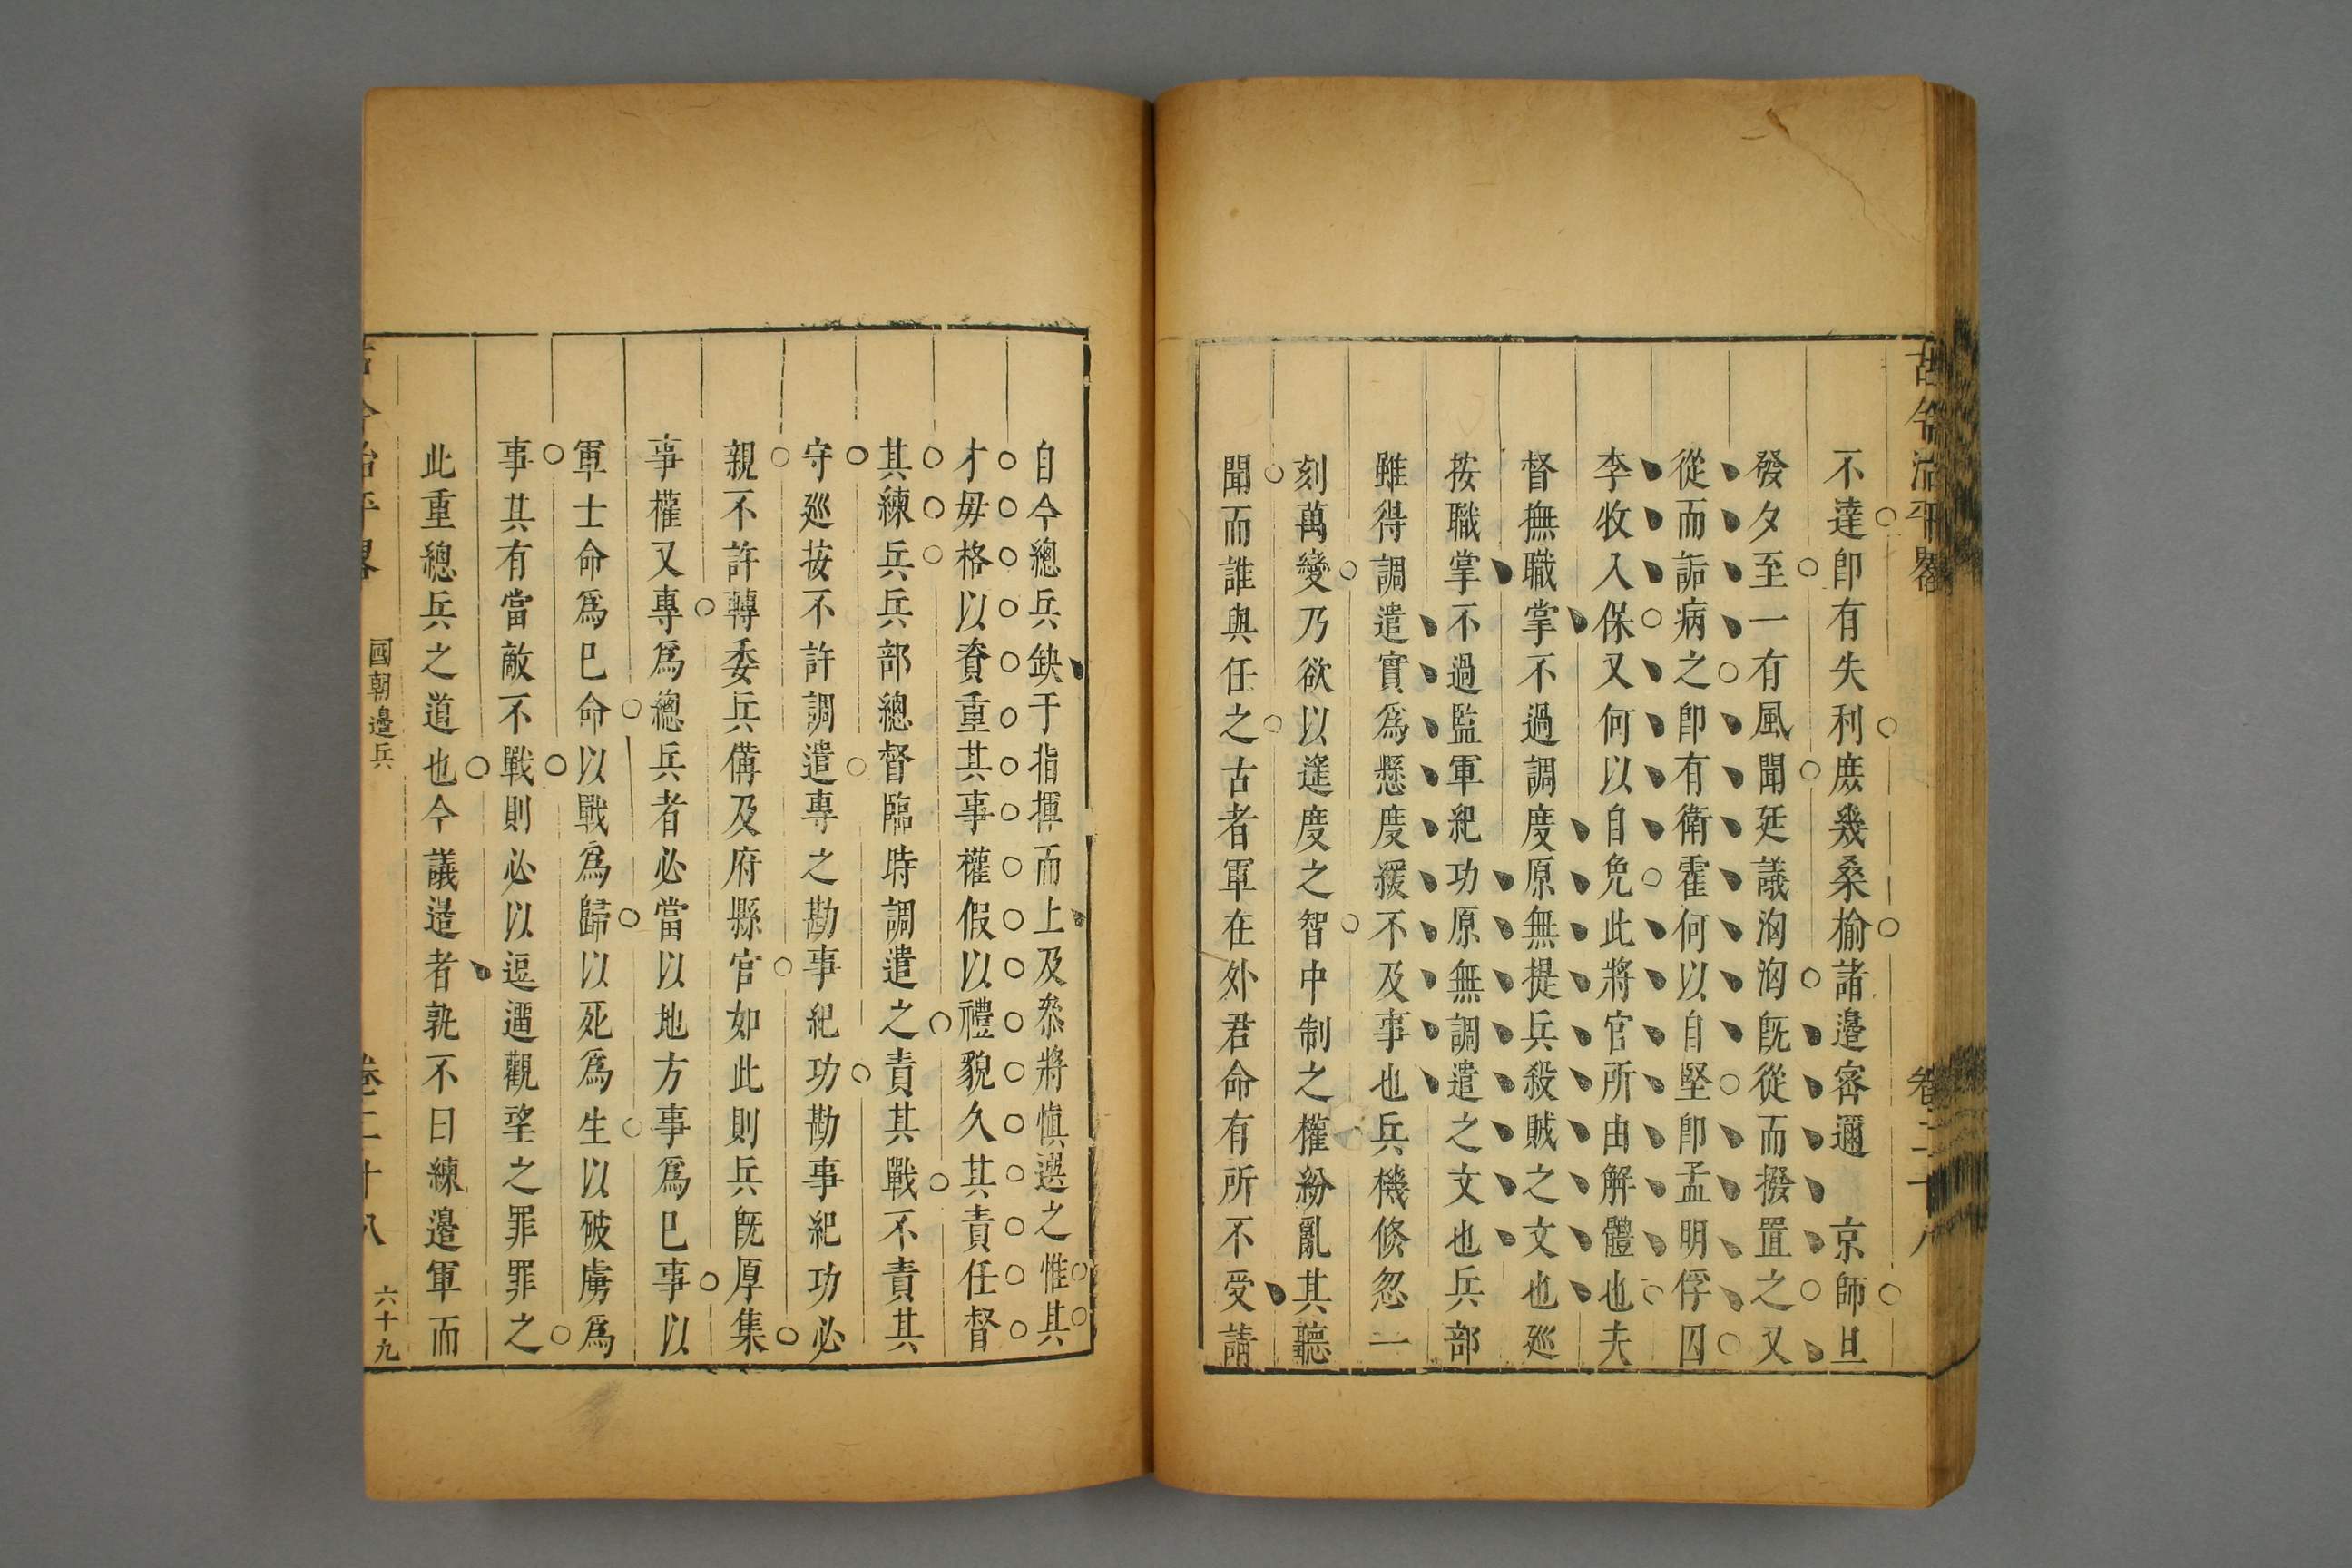 古今治平畧 卷二十八
不達卽有失利庶幾桑榆諸邉密邇 京師旦
發夕至一有風聞廷議洶洶旣從而撥置之又
從而詬病之卽有衛霍何以自堅卽孟明俘囚
李收入保又何以自免此將官所由解體也夫
督撫職掌不過調度原無提兵殺賊之文也廵
按職掌不過監軍紀功原無調遣之文也兵部
雖得調遣實爲懸度緩不及事也兵機倐忽一
刻萬變乃欲以遙度之智中制之權紛亂其聽
聞而誰與任之古者軍在外君命有所不受請
自今總兵缺于指揮而上及叅將愼選之惟其
才毋格以資重其事權假以禮貌久其責任督
其練兵兵部總督臨時調遣之責其戰不責其
守廵按不許調遣專之勘事紀功勘事紀功必
親不許轉委兵備及府縣官如此則兵旣厚集
事權又專爲總兵者必當以地方事爲巳事以
軍士命爲巳命以戰爲歸以死爲生以破虜爲
事其有當敵不戰則必以逗遛觀望之罪罪之
此重總兵之道也今議邉者孰不曰練邉軍而
古今治平畧 國朝邉兵 卷二十八 六十九